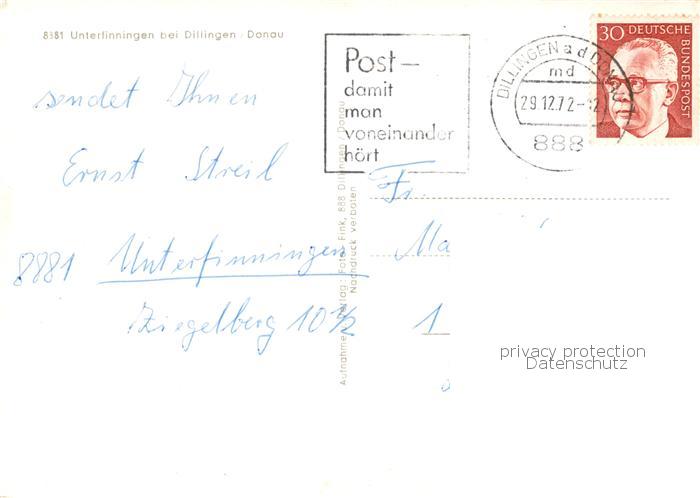 8881 Unterfinningen bei Dillingen/Donau
sendet Ihnen
Ernst Streil
8881 Unterfinningen
Ziegelberg 10½
Aufnahme u. Verlag: Foto Fink, 888 Dillingen/Donau
Nachdruck verboten
Post –
damit
man
voneinander
hört
DILLINGEN a d DONAU
md
29.12.72-12
888
30 DEUTSCHE
BUNDESPOST
Fr.
Ma
1
privacy protection
Datenschutz